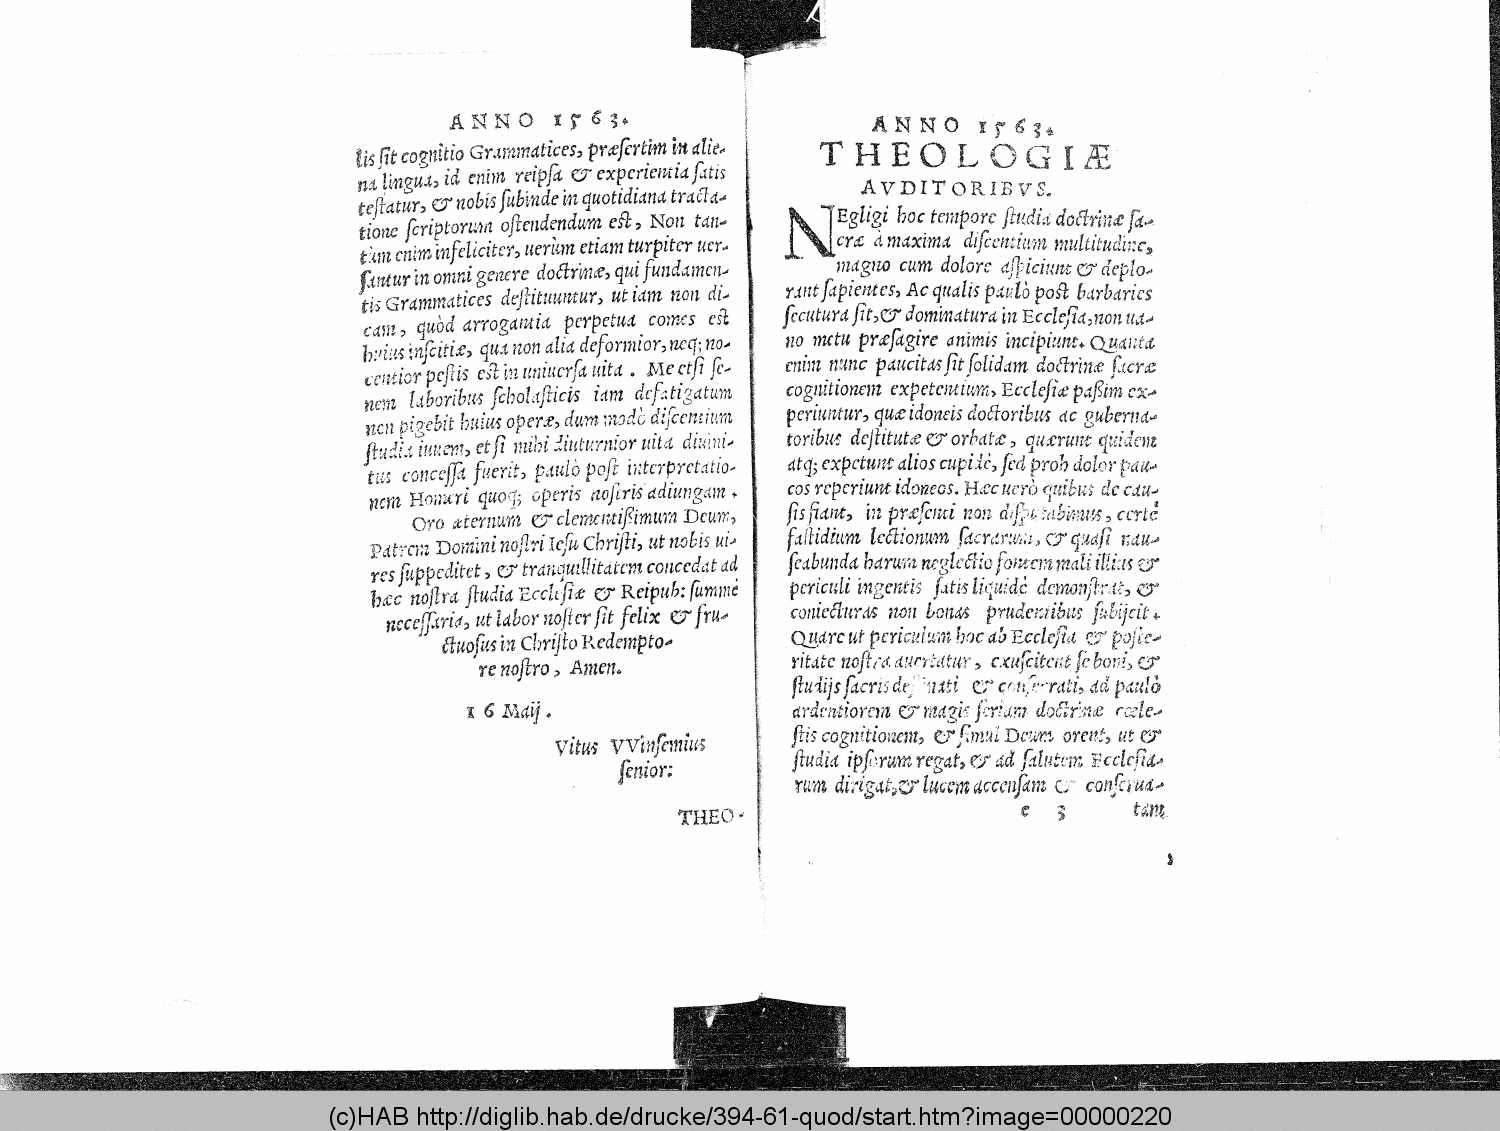 ANNO 1563.
tis ſit cognitio Grammatices, præſertim in alie-
na lingua, id enim reipſa & experientia ſatis
teſtatur, & nobis ſubinde in quotidiana tracta-
tione ſcriptorum oſtendendum eſt, Non tan-
tùm enim infeliciter, uerùm etiam turpiter uer-
ſantur in omni genere doctrinæ, qui fundamen-
tis Grammatices deſtituuntur, ut iam non di-
cam, quòd arrogantia perpetua comes eſt
huius inſcitiæ, qua non alia deformior, neq; no-
centior peſtis eſt in uniuerſa uita. Me etſi ſe-
nem laboribus ſcholaſticis iam defatigatum
non pigebit huius operæ, dum modò diſcentium
ſtudia iuuem, et ſi mihi diuturnior uita diuini-
tus conceſſa fuerit, paulò poſt interpretatio-
nem Homeri quoq; operis noſtris adiungam.
Oro æternum & clementißimum Deum,
Patrem Domini noſtri Ieſu Chriſti, ut nobis ui-
res ſuppeditet, & tranquillitatem concedat ad
hæc noſtra ſtudia Eccleſiæ & Reipub: ſummè
neceſſaria, ut labor noſter ſit felix & fru-
ctuoſus in Chriſto Redempto-
re noſtro, Amen.
16 Maij.
Vitus VVinſemius
ſenior:
THEO-
ANNO 1563.
THEOLOGIÆ
AVDITORIBVS.
NEgligi hoc tempore ſtudia doctrinæ ſa-
cræ à maxima diſcentium multitudine,
magno cum dolore aſpiciunt & deplo-
rant ſapientes, Ac qualis paulò poſt barbaries
ſecutura ſit, & dominatura in Eccleſia, non ua-
no metu præſagire animis incipiunt. Quanta
enim nunc paucitas ſit ſolidam doctrinæ ſacræ
cognitionem expetentium, Eccleſiæ paßim ex-
periuntur, quæ idoneis doctoribus ac guberna-
toribus deſtitutæ & orbatæ, quærunt quidem
atq; expetunt alios cupidè, ſed proh dolor pau-
cos reperiunt idoneos. Hæc uerò quibus de cau-
ſis fiant, in præſenti non diſputabimus, certè
faſtidium lectionum ſacrarum, & quaſi nau-
ſeabunda harum neglectio fontem mali illius &
periculi ingentis ſatis liquidè demonſtrat, &
coniecturas non bonas prudentibus ſubijcit.
Quare ut periculum hoc ab Eccleſia & poſte-
ritate noſtra auertatur, exuſcitent ſe boni, &
ſtudijs ſacris deſtinati & conſecrati, ad paulò
ardentiorem & magis ſeriam doctrinæ cœle-
ſtis cognitionem, & ſimul Deum orent, ut &
ſtudia ipſorum regat, & ad ſalutem Eccleſia-
rum dirigat, & lucem accenſam & conſerua-
e 3 tam
(c)HAB http://diglib.hab.de/drucke/394-61-quod/start.htm?image=00000220